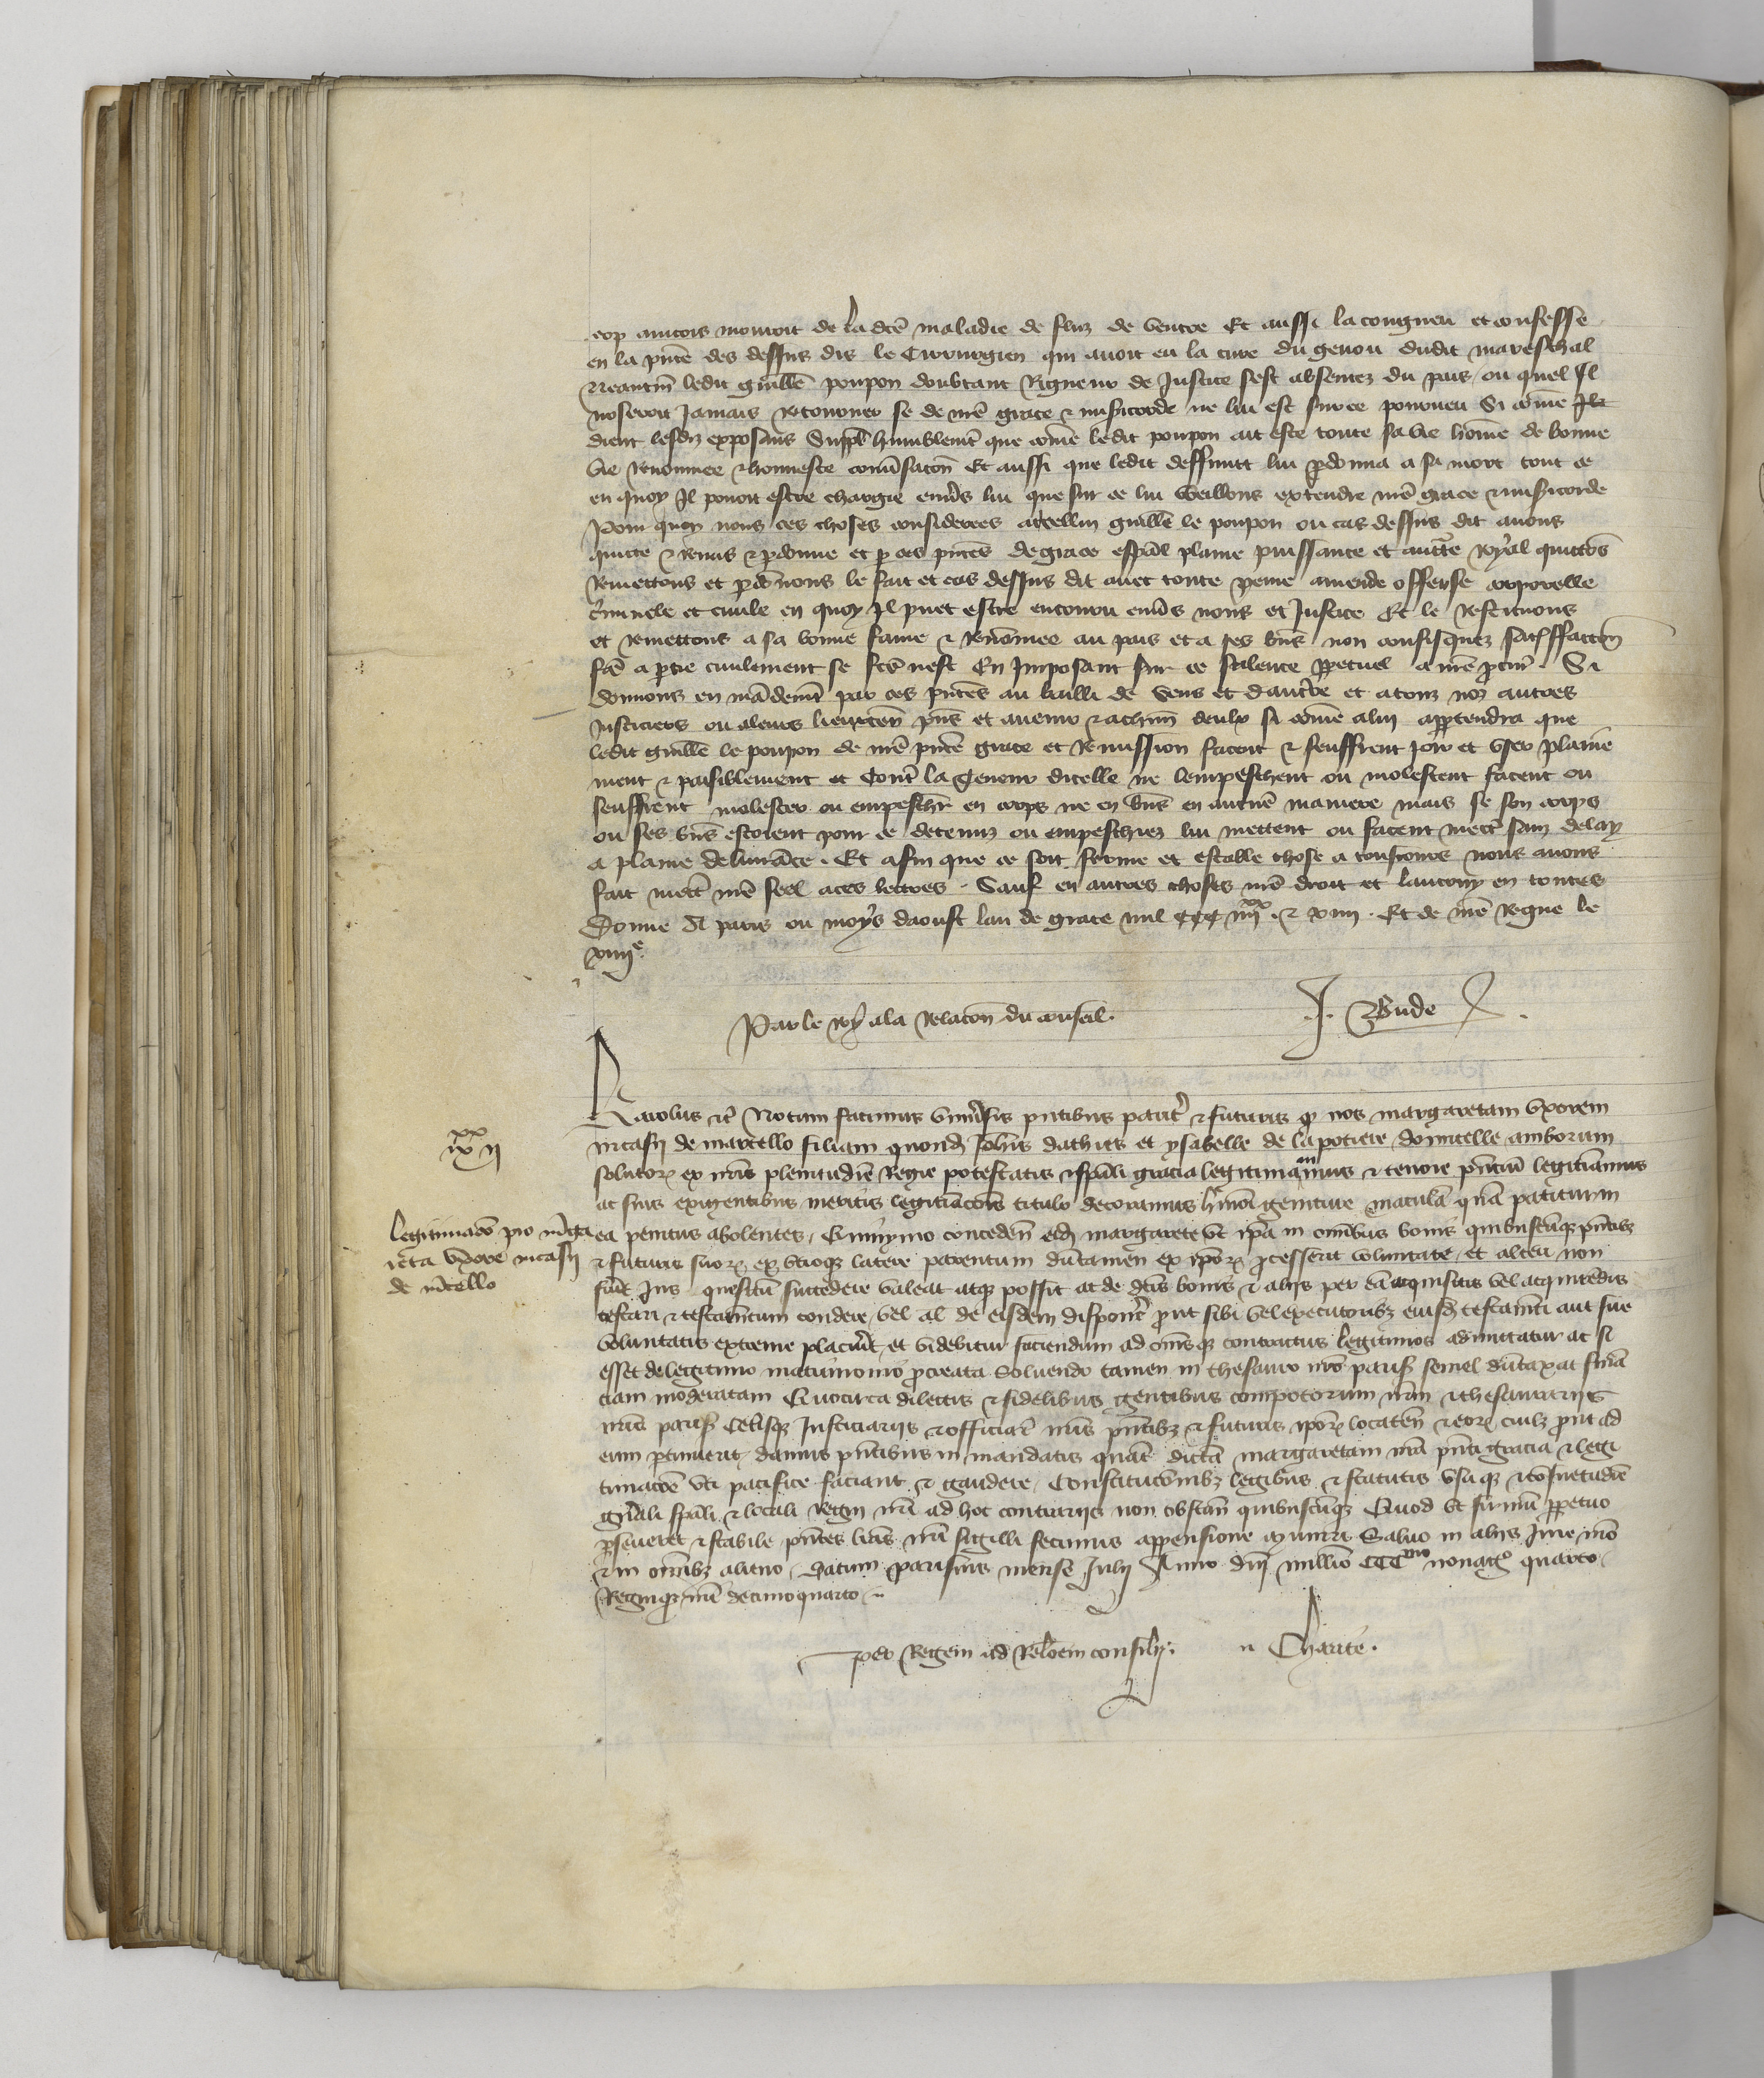 cop amcois mouroit de la dce maladie de flux de ventre Et aussi la congneu et confesse
en la pnce des dessus dis le Cirurgien qui avoit eu la cure du genou dudit mareschal
neantm ledit guille poupon doubtant Rigueur de Justice sest absentez du pais ou quel Il
noseroit Jamais Retourner se de nre grace & misicorde ne lui est sur ce pourveu Si come
dient lesdiz exposans Suppl humblemt que come ledit poupon ait este toute sa vie home de bonne
vie Renommee & honneste conusacon Et aussi que ledit deffunct lui pdonna a sa mort tout ce
en quoy Il pouoit estre chargie envs lui que sur ce lui veillons extendre nre grace & misicorde
Pour quoy nous ces choses considerees a icellui guille le poupon ou cas dessus dit avons
quitte & Remis & pdonne et p ces pntes de grace espal plaine puissance et aucte Royal quittons
Remettons et pdonnons le fait et cas dessus dit avec toute peine amende offense corporelle
criminele et civile en quoy Il puet estre encouru envs nous et Justice Et le Restituons
et Remettons a sa bonne fame & Renommee au pais et a ses bns non confisquez satisffaccon
fte a ptie civilement se fte nest En Imposant sur ce scilence ppetuel a nre pcur. Si
donnons en mademt par ces pntes au bailli de Sens et dauxrre et a touz noz autres
Justiciers ou a leurs lieuxten pns et avenir & a chun deulx si come a lui apptendra que
ledit guille le poupon de nre pnte grace et Remission facent & seuffrent Joir et user plaine
ment & paisiblement et Contre la teneur dicelle ne lempeschent ou molestent facent ou
seuffrent molester ou empeschr en corps ne en bns en aucune maniere mais se son corps
ou ses bns estoient pour ce detenuz ou empeschiez lui mettent ou facent mectre sanz delay
a plaine delivrace. Et afin que ce soit ferme et estable chose a tousiours nous avons
fait mectre nre seel a ces lectres. Sauf en autres choses nre droit et lautruy en toutes
Donne A paris ou moys daoust lan de grace mil CCC iiiixx & xiiii. Et de nre Regne le
xiiiie.
Par le Roy a la Relacon du conseil. J. Bude
Karolus &c Notum facimus univsis pntibus parit & futuris q nos margaretam uxorem
nicasij de marcello filiam quondam Johis dachies et ysabelle de la potiere domicelle amborum
solutor ex nris plenitudine Regie potestatis & spali gracia legitimamus & tenore pncium legitiamus
ac suis exigentibus meritis legitiacois titulo decoramus hmoi geniture macula qua patitur in
ea penitus abolentes, Quinymo conceden eid margarete ut ipa in omibus bonis quibuscuq pntib
& futuris suor ex utroq latere parentum dutamen ex ipor pcesserit voluntate et alteri non
fuit Jus quesitu succedere valeat atq possit ac de dcis bonis & alijs per ea acquisitis vel acquirendis
testari & testamentum condere, vel al de eisdem disponere put sibi vel executorib eiusd testamti aut sue
voluntatis extreme placuerit et videbitur faciendum ad omsq contractus legitimos admittatur ac si
esset de legitimo matrimonio pcreata Solvendo tamen in thesauro nro paris semel dutaxat finan
ciam moderatam Quocirca dilectis & fidelibus gentibus compotorum nrm & thesaurarijs
nris paris Cetisq Justiciarijs & officiar nris pntib & futuris ipor locaten & eor cuilz put ad
eum ptinuerit, damus pntibus in mandatis quat dicta margaretam nra pnti gracia & legi
timacoe uti pacifice faciant & gaudere, Constitucoibz legibus & statutis usuq & cosuetudie
gnali spali & locali Regni nri ad hoc contrarijs non obstan quibuscuq Quod ut firmu ppetuo
pseueret & stabile pntes lras nri sigilli fecimus appensione muniri Salvo in alijs Jure nro
& in omibz alieno, Datum parisius mense Julij Anno dni millio CCCmo nonag quarto
Regniq nri decimoquarto
per Regem ad Relacoem consilij. Charite.
iiiixx ij
Legitimaco pro mga
reta uxore nicasij
de mcello